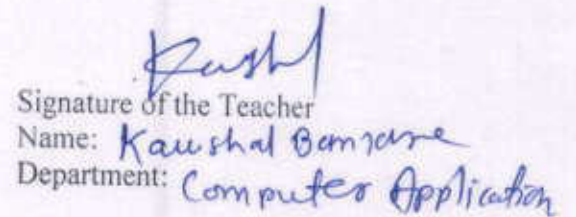 Kaushal
Signature of the Teacher
Name: Kaushal Banjare
Department: Computer Application